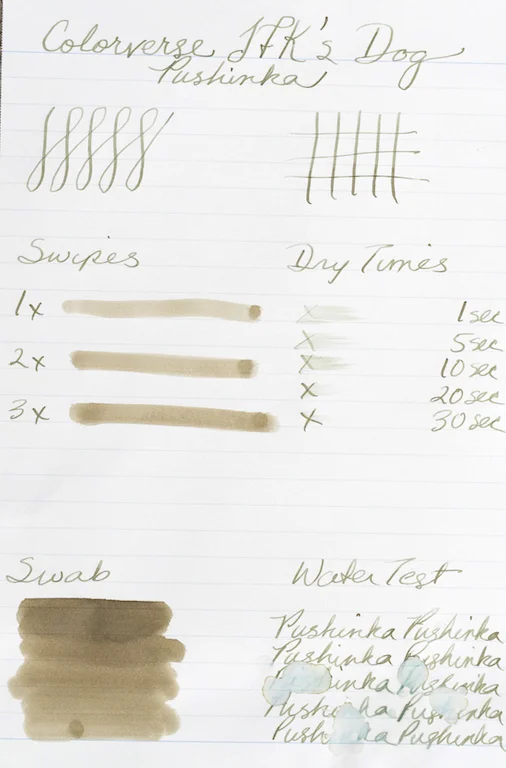 Colorverse JFK's Dog
Pushinka
Swipes
Dry Times
1x
1 sec
2x
5 sec
10 sec
3x
20 sec
30 sec
Swab
Water Test
Pushinka Pushinka
Pushinka Pushinka
inka Pushinka
Pushinka Pushinka
Push ka Pushinka